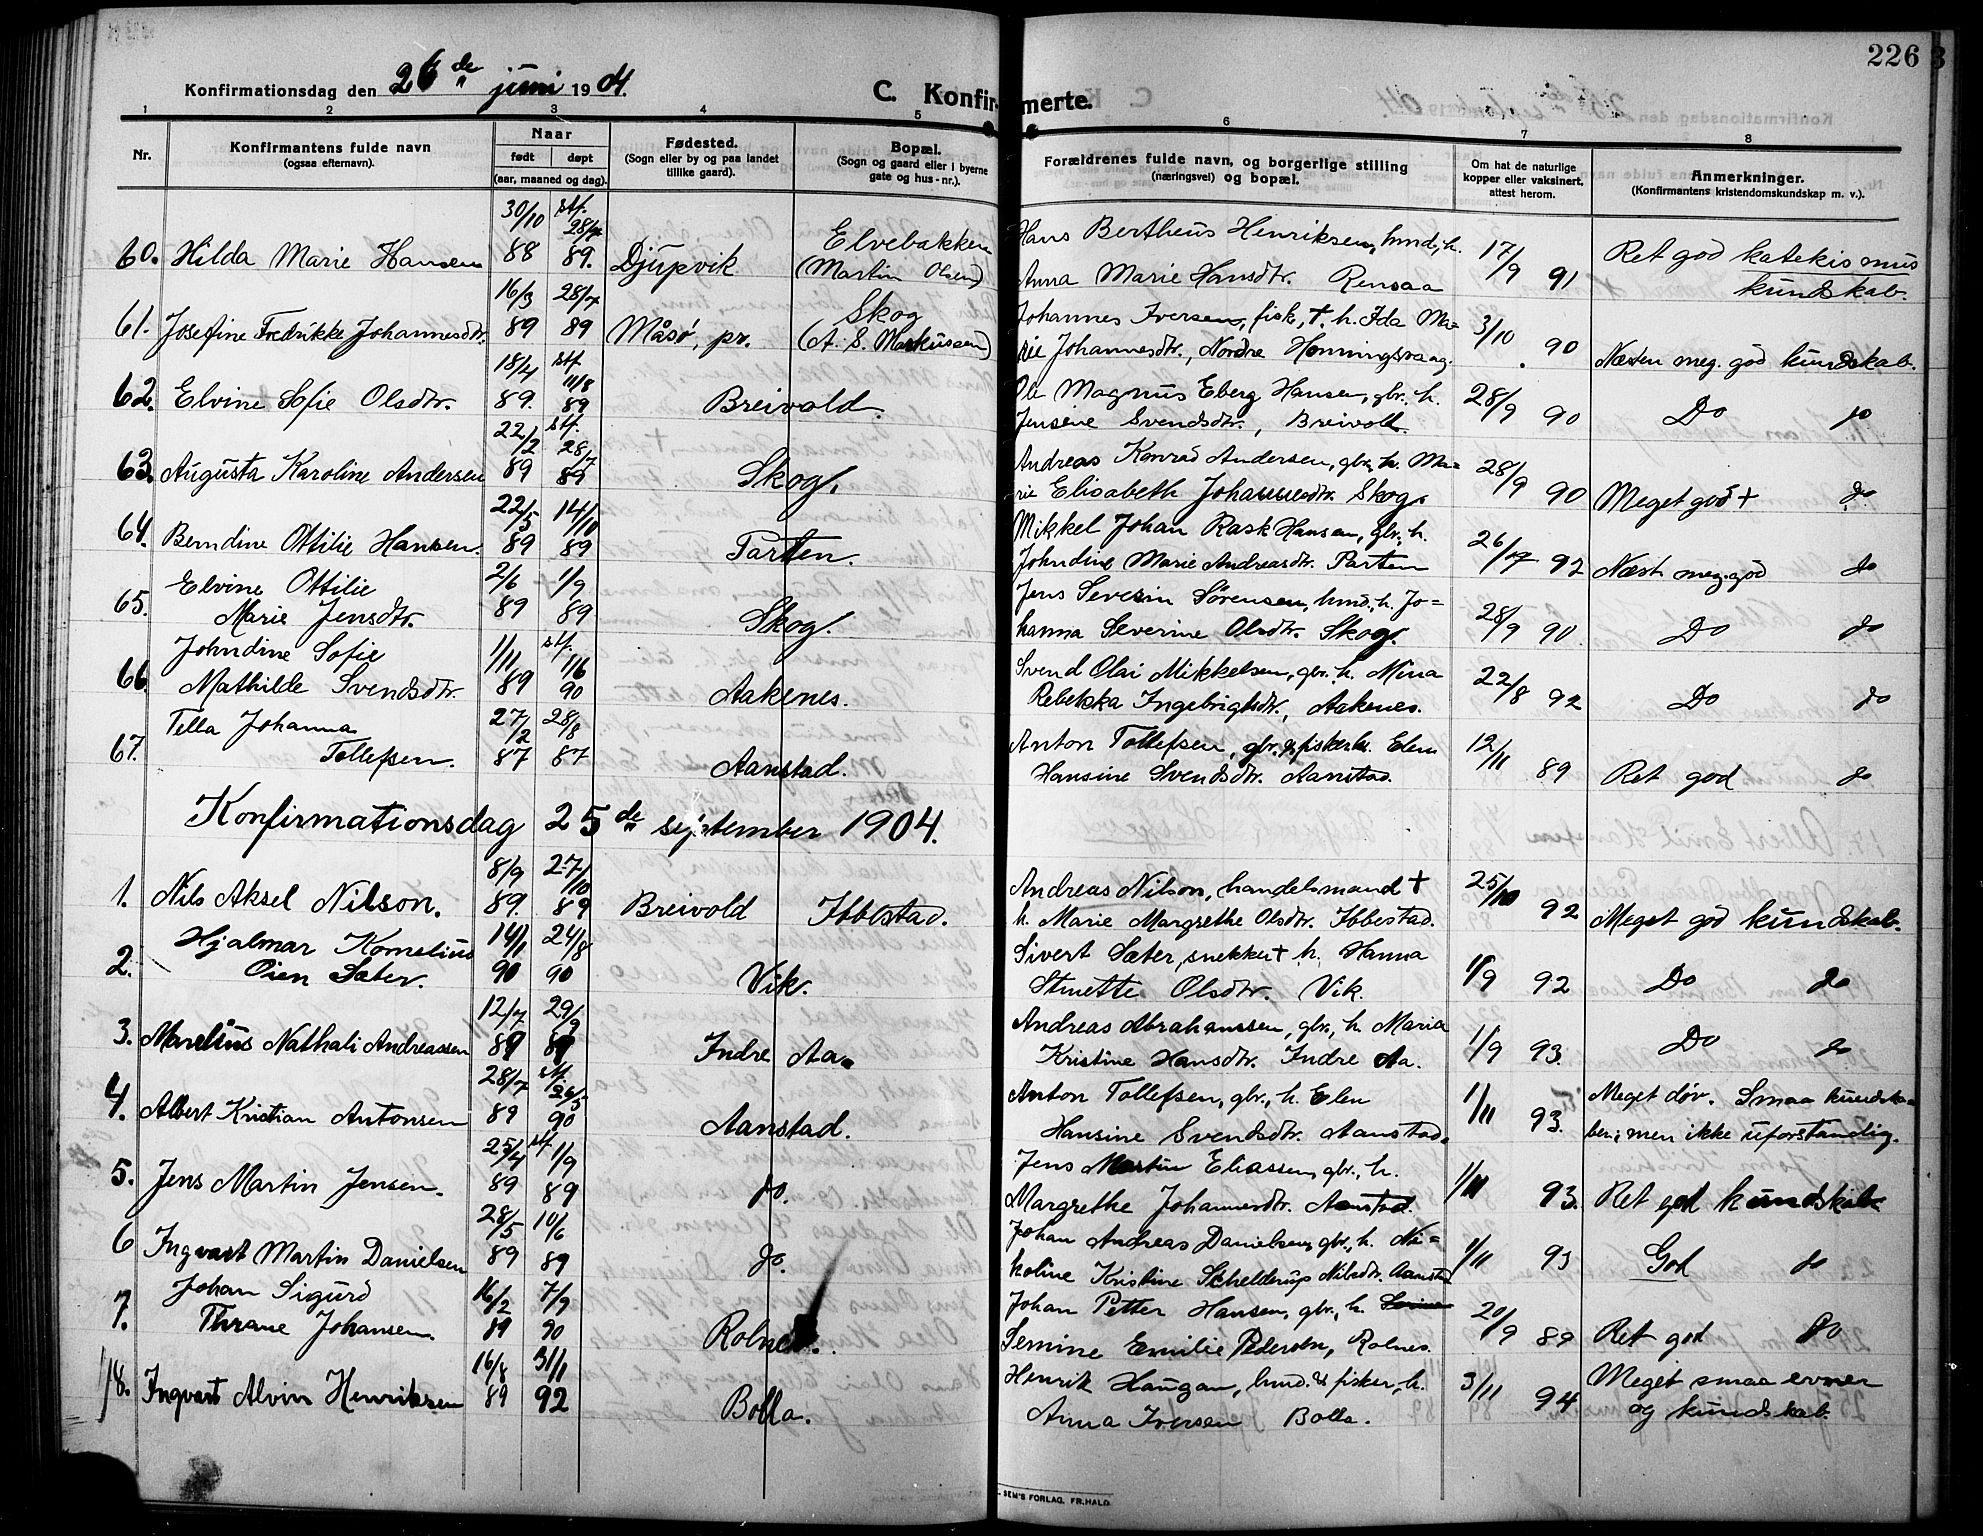 226
Konfirmationsdag den 26de juni 1904.
C. Konfirmerte.
1 2 3 4 5 6 7 8
Nr.
Konfirmantens fulde navn
(ogsaa efternavn).
Naar
født døpt
(aar, maaned og dag).
Fødested.
(Sogn eller by og paa landet
tillike gaard).
Bopæl.
(Sogn og gaard eller i byerne
gate og hus-nr.).
Forældrenes fulde navn, og borgerlige stilling
(næringsvei) og bopæl.
Om hat de naturlige
kopper eller vaksinert,
attest herom.
Anmerkninger.
(Konfirmantens kristendomskundskap m. v.).
30/10 stf. 28/4 Elvebakken Hans Bertheus Henriksen, hmd., h. 17/9 Ret god katekismus
60. Hilda Marie Hansen 88 89. Djupvik (Martin Olsen) Anna Marie Hansdtr. Rensaa 91 kundskab.
16/3 28/7 Skog Johannes Iversen, fisk., †, h. Ida Ma=
61. Josefine Fredrikke Johannesdtr. 89 89 Måsø, pr. (A. S. Markussen) rie Johannesdtr., Nordre Honningsvaag. 3/10 90 Næsten meg. god kundskab.
18/4 stf. 11/8 Ole Magnus Eberg Hansen, gbr., h. 28/9
62. Elvine Sofie Olsdtr. 89. 89 Breivold. Jensine Svendsdtr., Breivold. 90 Do do
22/2 stf. 28/7 Andreas Konrad Andersen, gbr., h. Ma= 28/9
63. Augusta Karoline Andersen 89 89 Skog. rie Elisabeth Johannesdtr. Skog. 90 Meget god + do
22/5 14/10 Mikkel Johan Rask Hansen, gbr., h. 26/7
64. Berndine Ottilie Hansen. 89 89 Parten. Johndine Marie Andreasdtr. Parten 92 Næst. meg. god do
Elvine Ottilie 2/6 1/9 Jens Severin Sørensen, hmd., h. Jo= 28/9
65. Marie Jensdtr. 89 89 Skog. hanna Severine Olsdtr. Skog. 90. Do do
Johndine Sofie 1/11 stf. 1/6 Svend Olai Mikkelsen, gbr., h. Mina 22/8
66. Mathilde Svendsdtr. 89 90 Aakenes. Rebekka Ingebrigtsdtr., Aakenes. 92 Do do
Tella Johanna 27/2 28/8 Anton Tollefsen, gbr. & fisker, h. Elen 12/11
67. Tollefsen. 87 87 Aanstad. Hansine Svendsdtr. Aanstad. 89 Ret god do
Konfirmationsdag 25de september 1904.
8/9 27/10 Andreas Nilson, handelsmand † 25/10
1. Nils Aksel Nilson. 89. 89 Breivold Ibbestad. h. Marie Margrethe Olsdtr. Ibbestad. 92 Meget god kundskab.
Hjalmar Kornelius 14/1 24/8 Sivert Sæter, snekker † h. Hanna
2. Oien Sæter. 90 90 Vik. Stinette Olsdtr. Vik. 1/9 92 Do do
12/7 29/9 Andreas Abrahamssen, gbr., h. Maria
3. Marelius Nathali Andreassen 89 89 Indre Aa. Kristine Hansdtr. Indre Aa. 1/9 93. Do do
28/7 stf. 26/5 Anton Tollefsen, gbr., h. Elen 1/11 Meget døv. Smaa kundska=
4. Albert Kristian Antonsen 89 90 Aanstad. Hansine Svendsdtr. Aanstad. 93. ber; men ikke uforstandig.
25/4 stf. 1/9 Jens Martin Eliassen, gbr., h.
5. Jens Martin Jensen. 89 89 do. Margrethe Johannesdtr. Aanstad. 1/11 93. Ret god kundskab
28/5 10/6 Johan Andreas Danielsen, gbr., h. Ni=
6 Ingvart Martin Danielsen 89 89 do. koline Kristine Schelderup Nilsdtr. Aanstad 1/11 93 God do
Johan Sigurd 16/2 7/9 Johan Petter Hansen, gbr., h. 20/9
7. Thrane Johansen. 89 90 Rolnes. Semine Emilie Pedersen, Rolnes. 89 Ret god do
16/8 31/1 Henrik Haugan, hmd. & fisker, h. 3/11 Meget smaa evner
8. Ingvart Alvin Henriksen 89 92 Bolla. Anna Iversen Bolla. 94 og kundskab.
SEM'S FORLAG, FR.HALD.